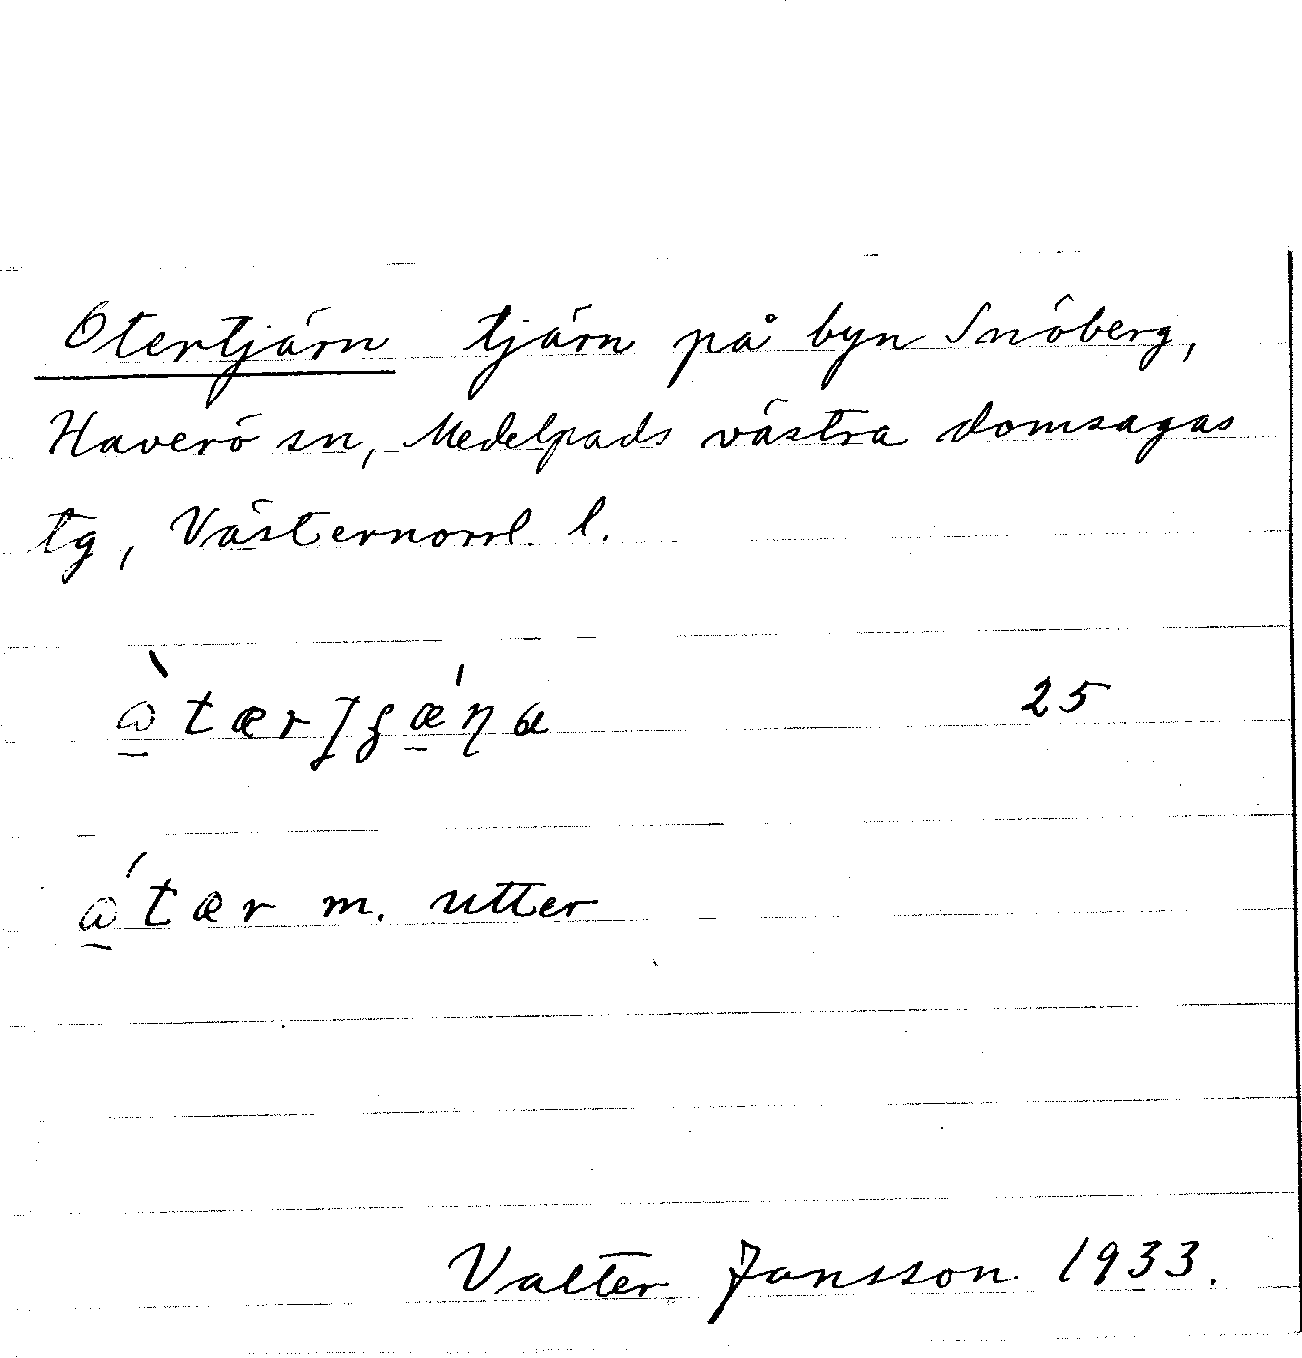 Otertjärn tjärn på byn Snöberg,
Haverö sn, Medelpads västra domsagas
tg, Västernorrl. l.
25
m. utter
Valter Jansson 1933.